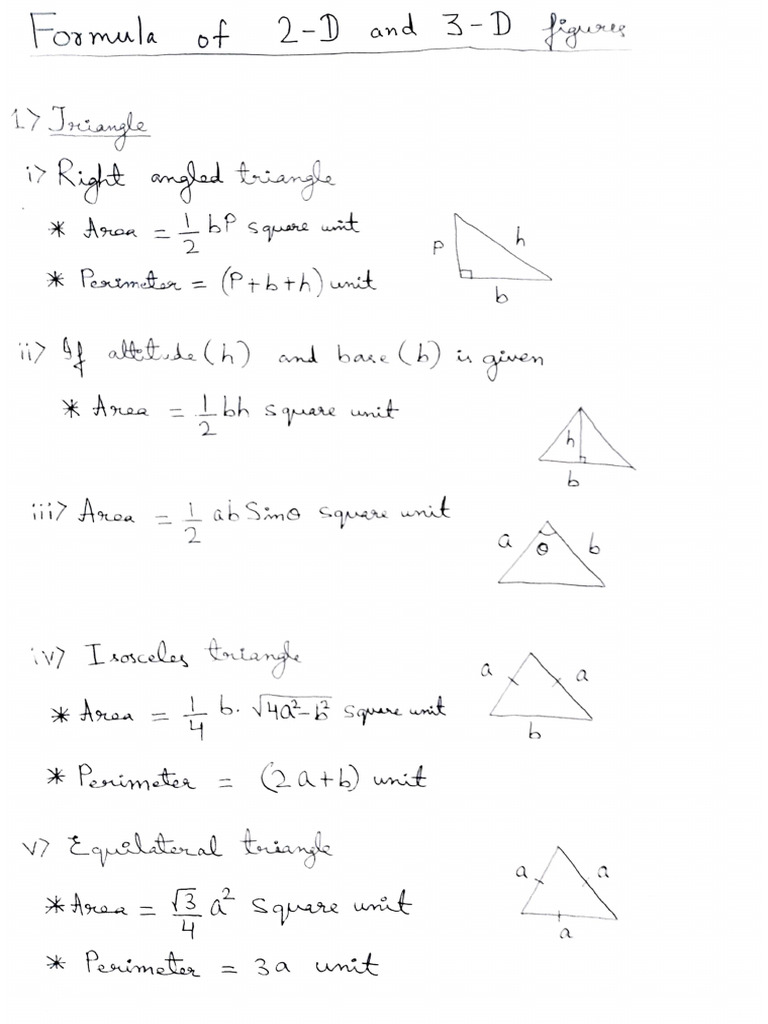 Formula of 2-D and 3-D figures
1> Triangle
i> Right angled triangle
* Area = 1/2 bP square unit
* Perimeter = (P+b+h) unit
P
h
b
ii> If altitude(h) and base(b) is given
* Area = 1/2 bh square unit
h
b
iii> Area = 1/2 ab Sinθ square unit
a
θ
b
iv> Isosceles triangle
* Area = 1/4 b. √(4a²-b²) square unit
* Perimeter = (2a+b) unit
a
a
b
v> Equilateral triangle
* Area = √3/4 a² square unit
* Perimeter = 3a unit
a
a
a